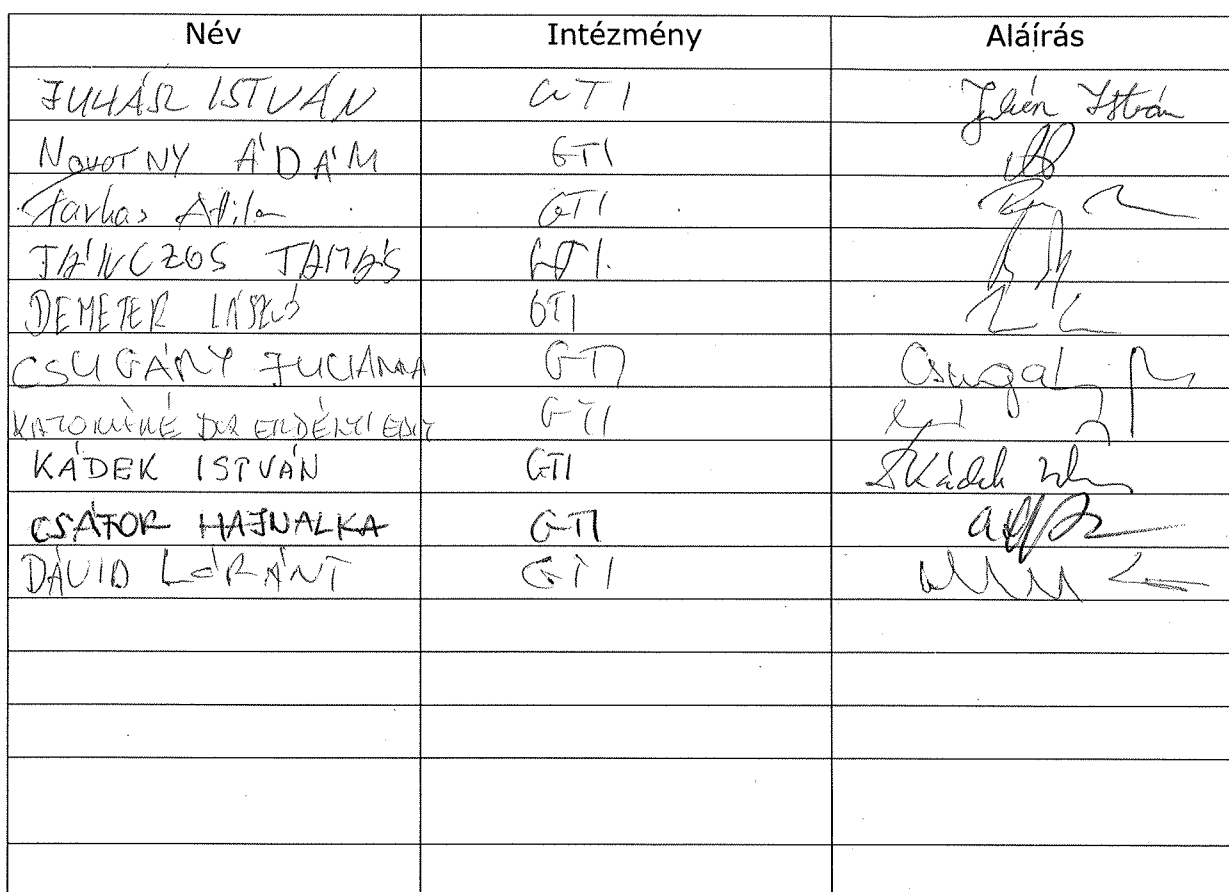 Név Intézmény Aláírás
JUHÁSZ ISTVÁN GTI Juhász István
NOVOTNY ÁDÁM GTI
Farkas Attila GTI
TÁNCZOS TAMÁS GTI.
DEMETER LÁSZLÓ GTI
CSUGÁNY JULIANNA GTI Csugány
DR ERDÉLYI EDIT GTI
KÁDEK ISTVÁN GTI Kádek
CSÁTOR HAJNALKA GTI
DÁVID LÓRÁNT GTI